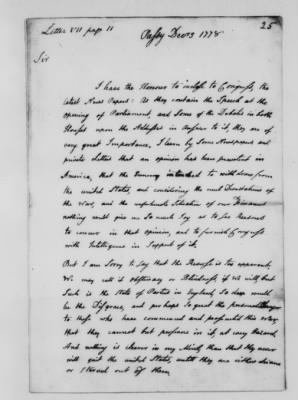 Letter VII page 11
25
Passy Decr 3 1778
Sir
I have the Honour to inclose to Congress, the
latest News Papers: As they contain the Speech at the
opening of Parliament, and Some of the Debates in both
Houses upon the Addresses in Answer to it, they are of
very great Importance, I learn by Some Newspapers and
private Letters that an opinion has been prevalent in
America, that the Enemy intended to withdraw from
the united States, and considering the
of the War, and the unfortunate Situation of our
nothing could give me So much Joy as to See Reasons
to concur in that opinion, and to furnish Congress
with Intelligence in Support of it.
But I am Sorry to Say that the Reverse is too apparent,
We may call it obstinacy or Blindness, if we will, but
Such is the State of Parties in England, So deep would
be the Disgrace, and perhaps So great the personal Danger
to those who have commenced and prosecuted this War,
that they cannot but persevere in it, at every Hazard
And nothing is clearer in my Mind, than that they never
will quit the united States, until they are either driven
or Starved out of them,